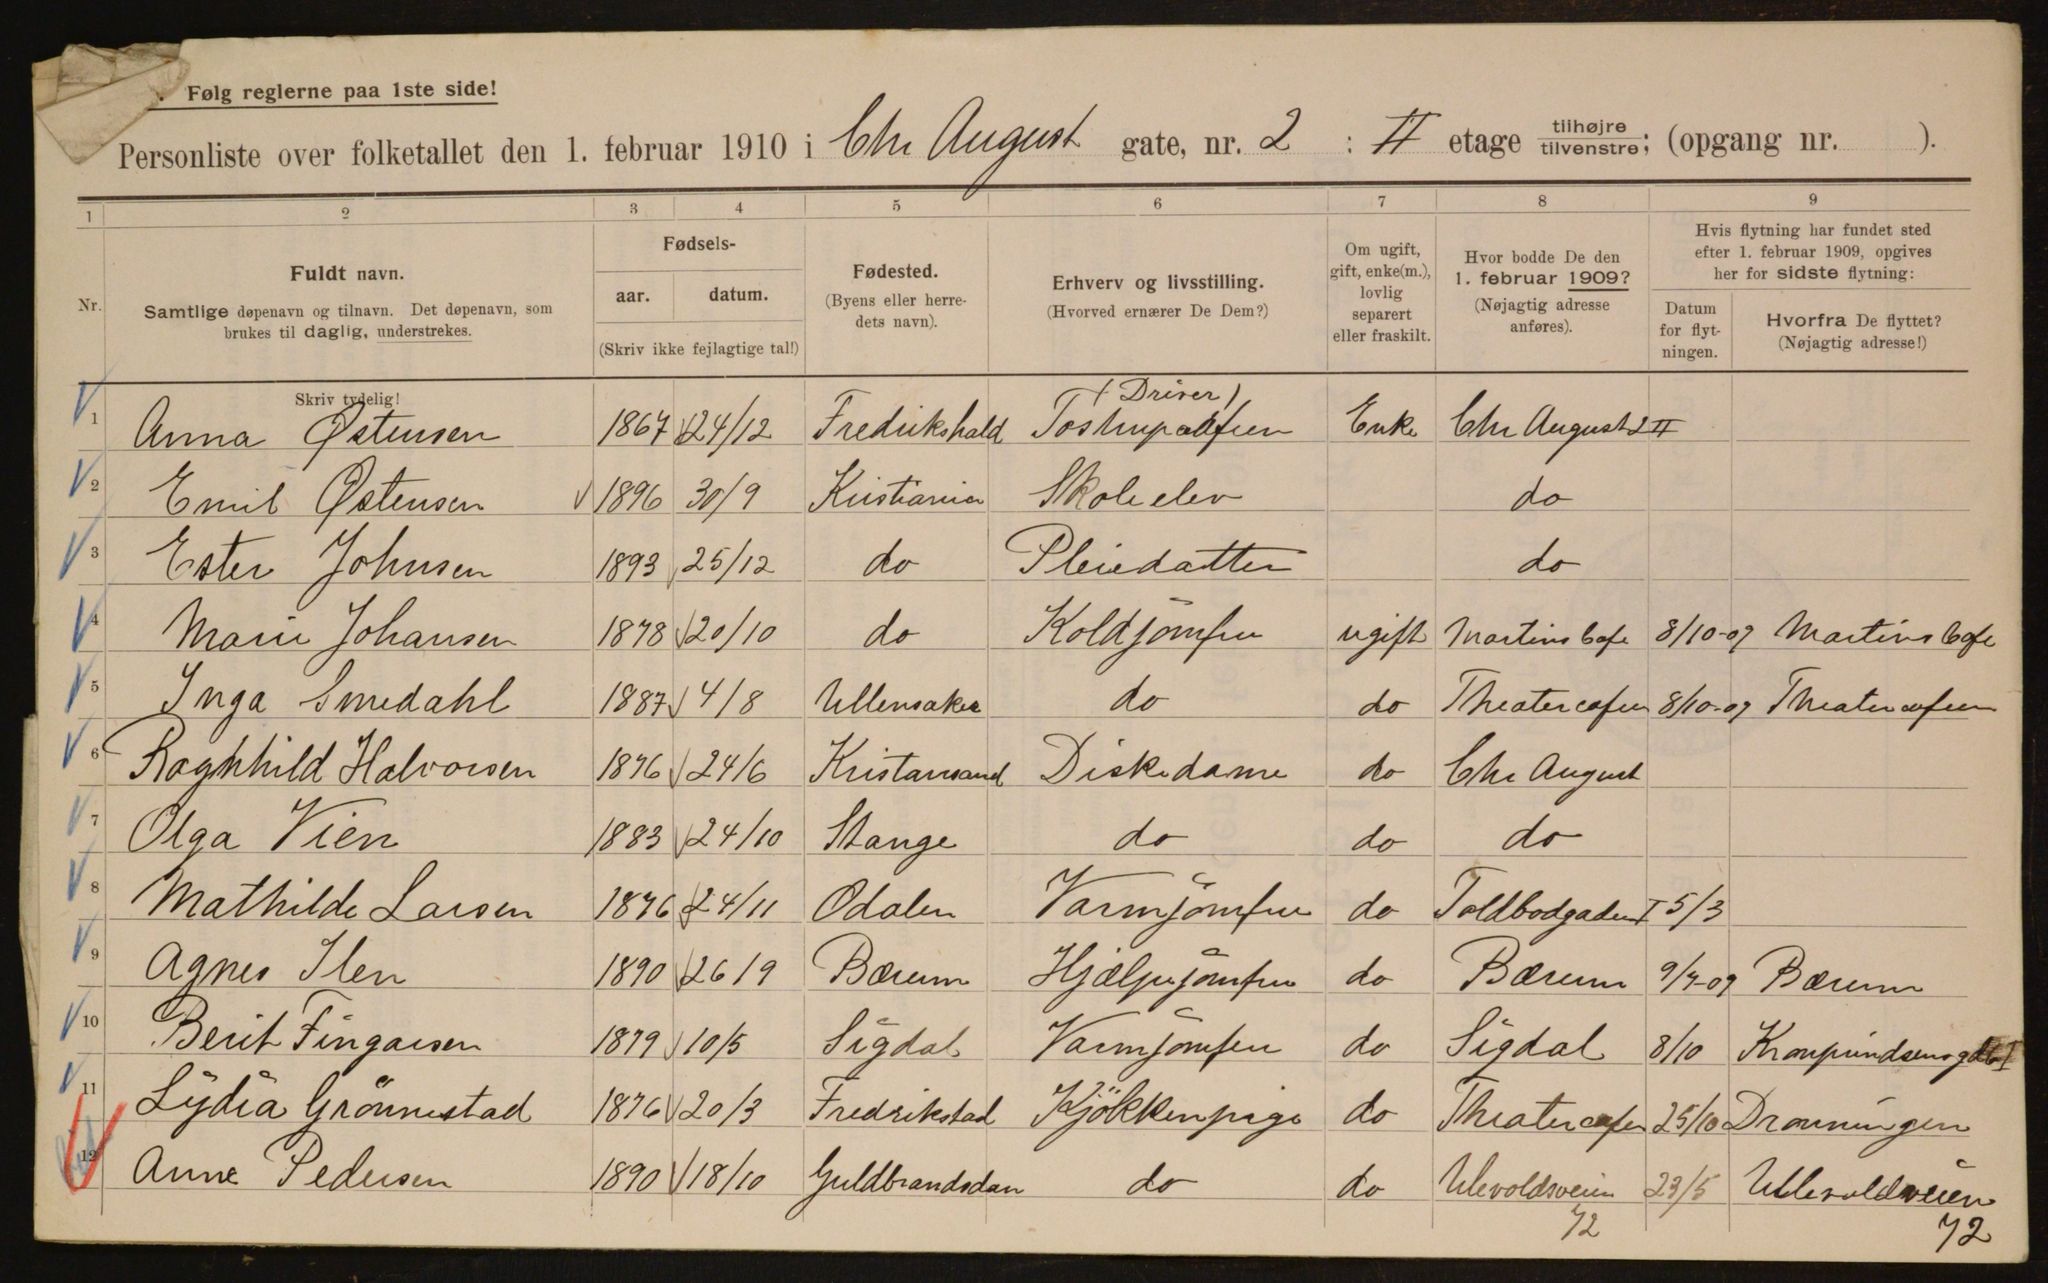 Følg reglerne paa 1ste side!
Personliste over folketallet den 1. februar 1910 i Chr August gate, nr. 2 : II etage tilhøjre tilvenstre; (opgang nr. ).
1 2 3 4 5 6 7 8 9
Nr. Fuldt navn. Samtlige døpenavn og tilnavn. Det døpenavn, som brukes til daglig, understrekes.
Fødsels- aar. datum. (Skriv ikke fejlagtige tal!)
Fødested. (Byens eller herredets navn).
Erhverv og livsstilling. (Hvorved ernærer De Dem?)
Om ugift, gift, enke(m.), lovlig separert eller fraskilt.
Hvor bodde De den 1. februar 1909? (Nøjagtig adresse anføres).
Hvis flytning har fundet sted efter 1. februar 1909, opgives her for sidste flytning:
Datum for flytningen. Hvorfra De flyttet? (Nøjagtig adresse!)
Skriv tydelig!
(Driver)
1 Anna Østensen 1867 24/12 Fredrikshald Tostrupcafeen Enke Chr August 2 II
2 Emil Østensen 1896 30/9 Kristiania Skoleelev do
3 Ester Johnsen 1893 25/12 do Pleiedatter do
4 Marie Johansen 1878 20/10 do Koldjomfru ugift Martins Cafe 8/10-09 Martins Cafe
5 Inga Smedahl 1887 4/8 Ullensaker do do Theatercafeen 8/10-09 Theatercafeen
6 Raghhild Halvorsen 1876 24/6 Kristansand Diskedame do Chr August
7 Olga Vien 1883 24/10 Stange do do do
8 Mathilde Larsen 1876 24/11 Odalen Varmjomfru do Toldbodgaden I 5/3
9 Agnes Ilen 1890 26/9 Bærum Hjælpejomfru do Bærum 9/4-09 Bærum
10 Berit Fingarsen 1879 10/5 Sigdal Varmjomfru do Sigdal 8/10
11 Lydia Grönnestad 1876 20/3 Fredrikstad Kjökkenpige do Theatercafen 25/10 Dronningen
12 Anne Pedersen 1890 18/10 Guldbrandsdan do do Ulevoldsveien 23/5 Ullevoldsveien
72 72